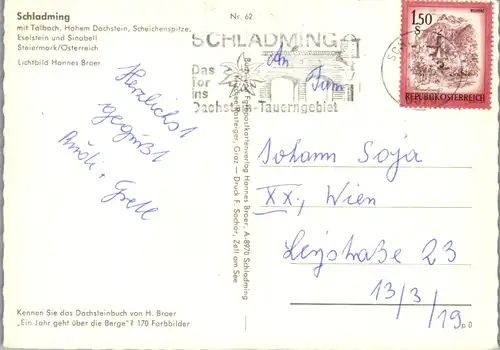 Schladming
mit Talbach, Hohem Dachstein, Scheichenspitze,
Eselstein und Sinabell
Steiermark/Österreich
Lichtbild Hannes Broer
Nr. 62
SCHLADMING
Das
Tor
ins
Dachstein-Tauerngebiet
1.50
S
REPUBLIK ÖSTERREICH
An
Fam
Herzlichst
gegrüßt
Rudi + Grete
Fotopostkartenverlag Hannes Broer, A-8970 Schladming
Graz — Druck F. Sochor, Zell am See
Johann Soja
XX., Wien
Leystraße 23
13/3/19
p 0
Kennen Sie das Dachsteinbuch von H. Broer
„Ein Jahr geht über die Berge"? 170 Farbbilder